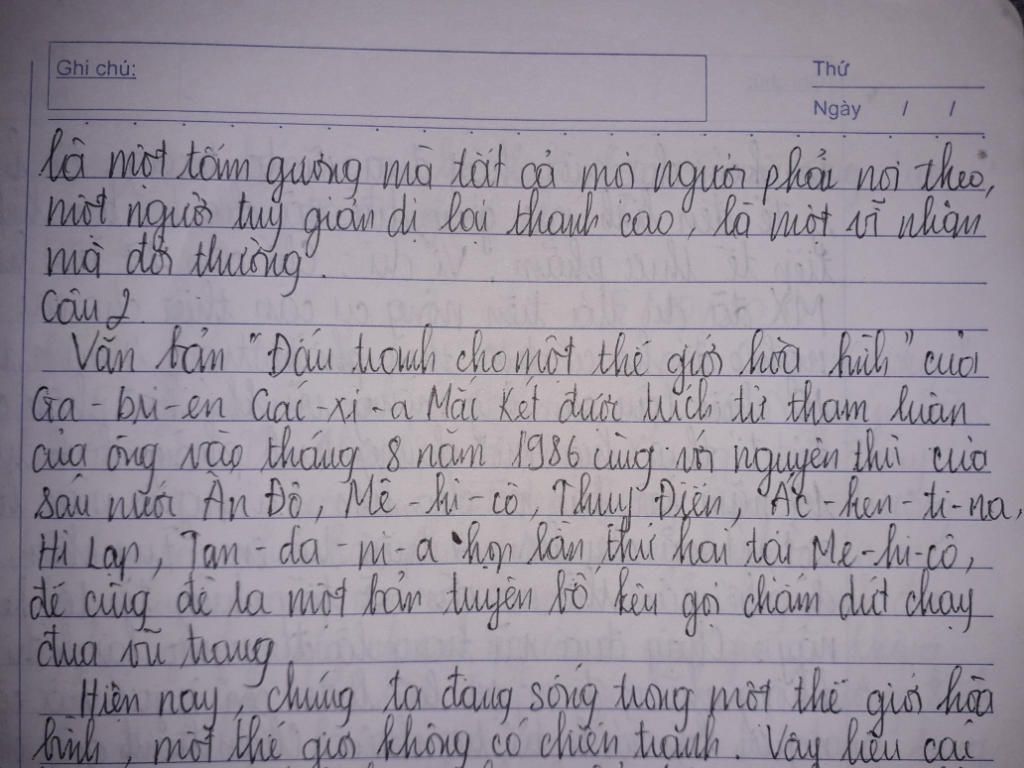 Ghi chú:
Thứ
Ngày / /
là một tấm gương mà tất cả mọi người phải noi theo,
một người tuy giản dị lại thanh cao, là một vĩ nhân
mà đời thường".
Câu 2
Văn bản "Đấu tranh cho một thế giới hòa bình" của
Ga-bri-en Gác-xi-a Mác Két được trích từ tham luận
của ông vào tháng 8 năm 1986 cùng với nguyên thủ của
sáu nước Ấn Độ, Mê-hi-cô, Thụy Điển, Ác-hen-ti-na,
Hi Lạp, Tan-da-ni-a họp lần thứ hai tại Mê-hi-cô,
để cùng đề ra một bản tuyên bố kêu gọi chấm dứt chạy
đua vũ trang
Hiện nay, chúng ta đang sống trong một thế giới hòa
bình, một thế giới không có chiến tranh. Vậy liệu cái